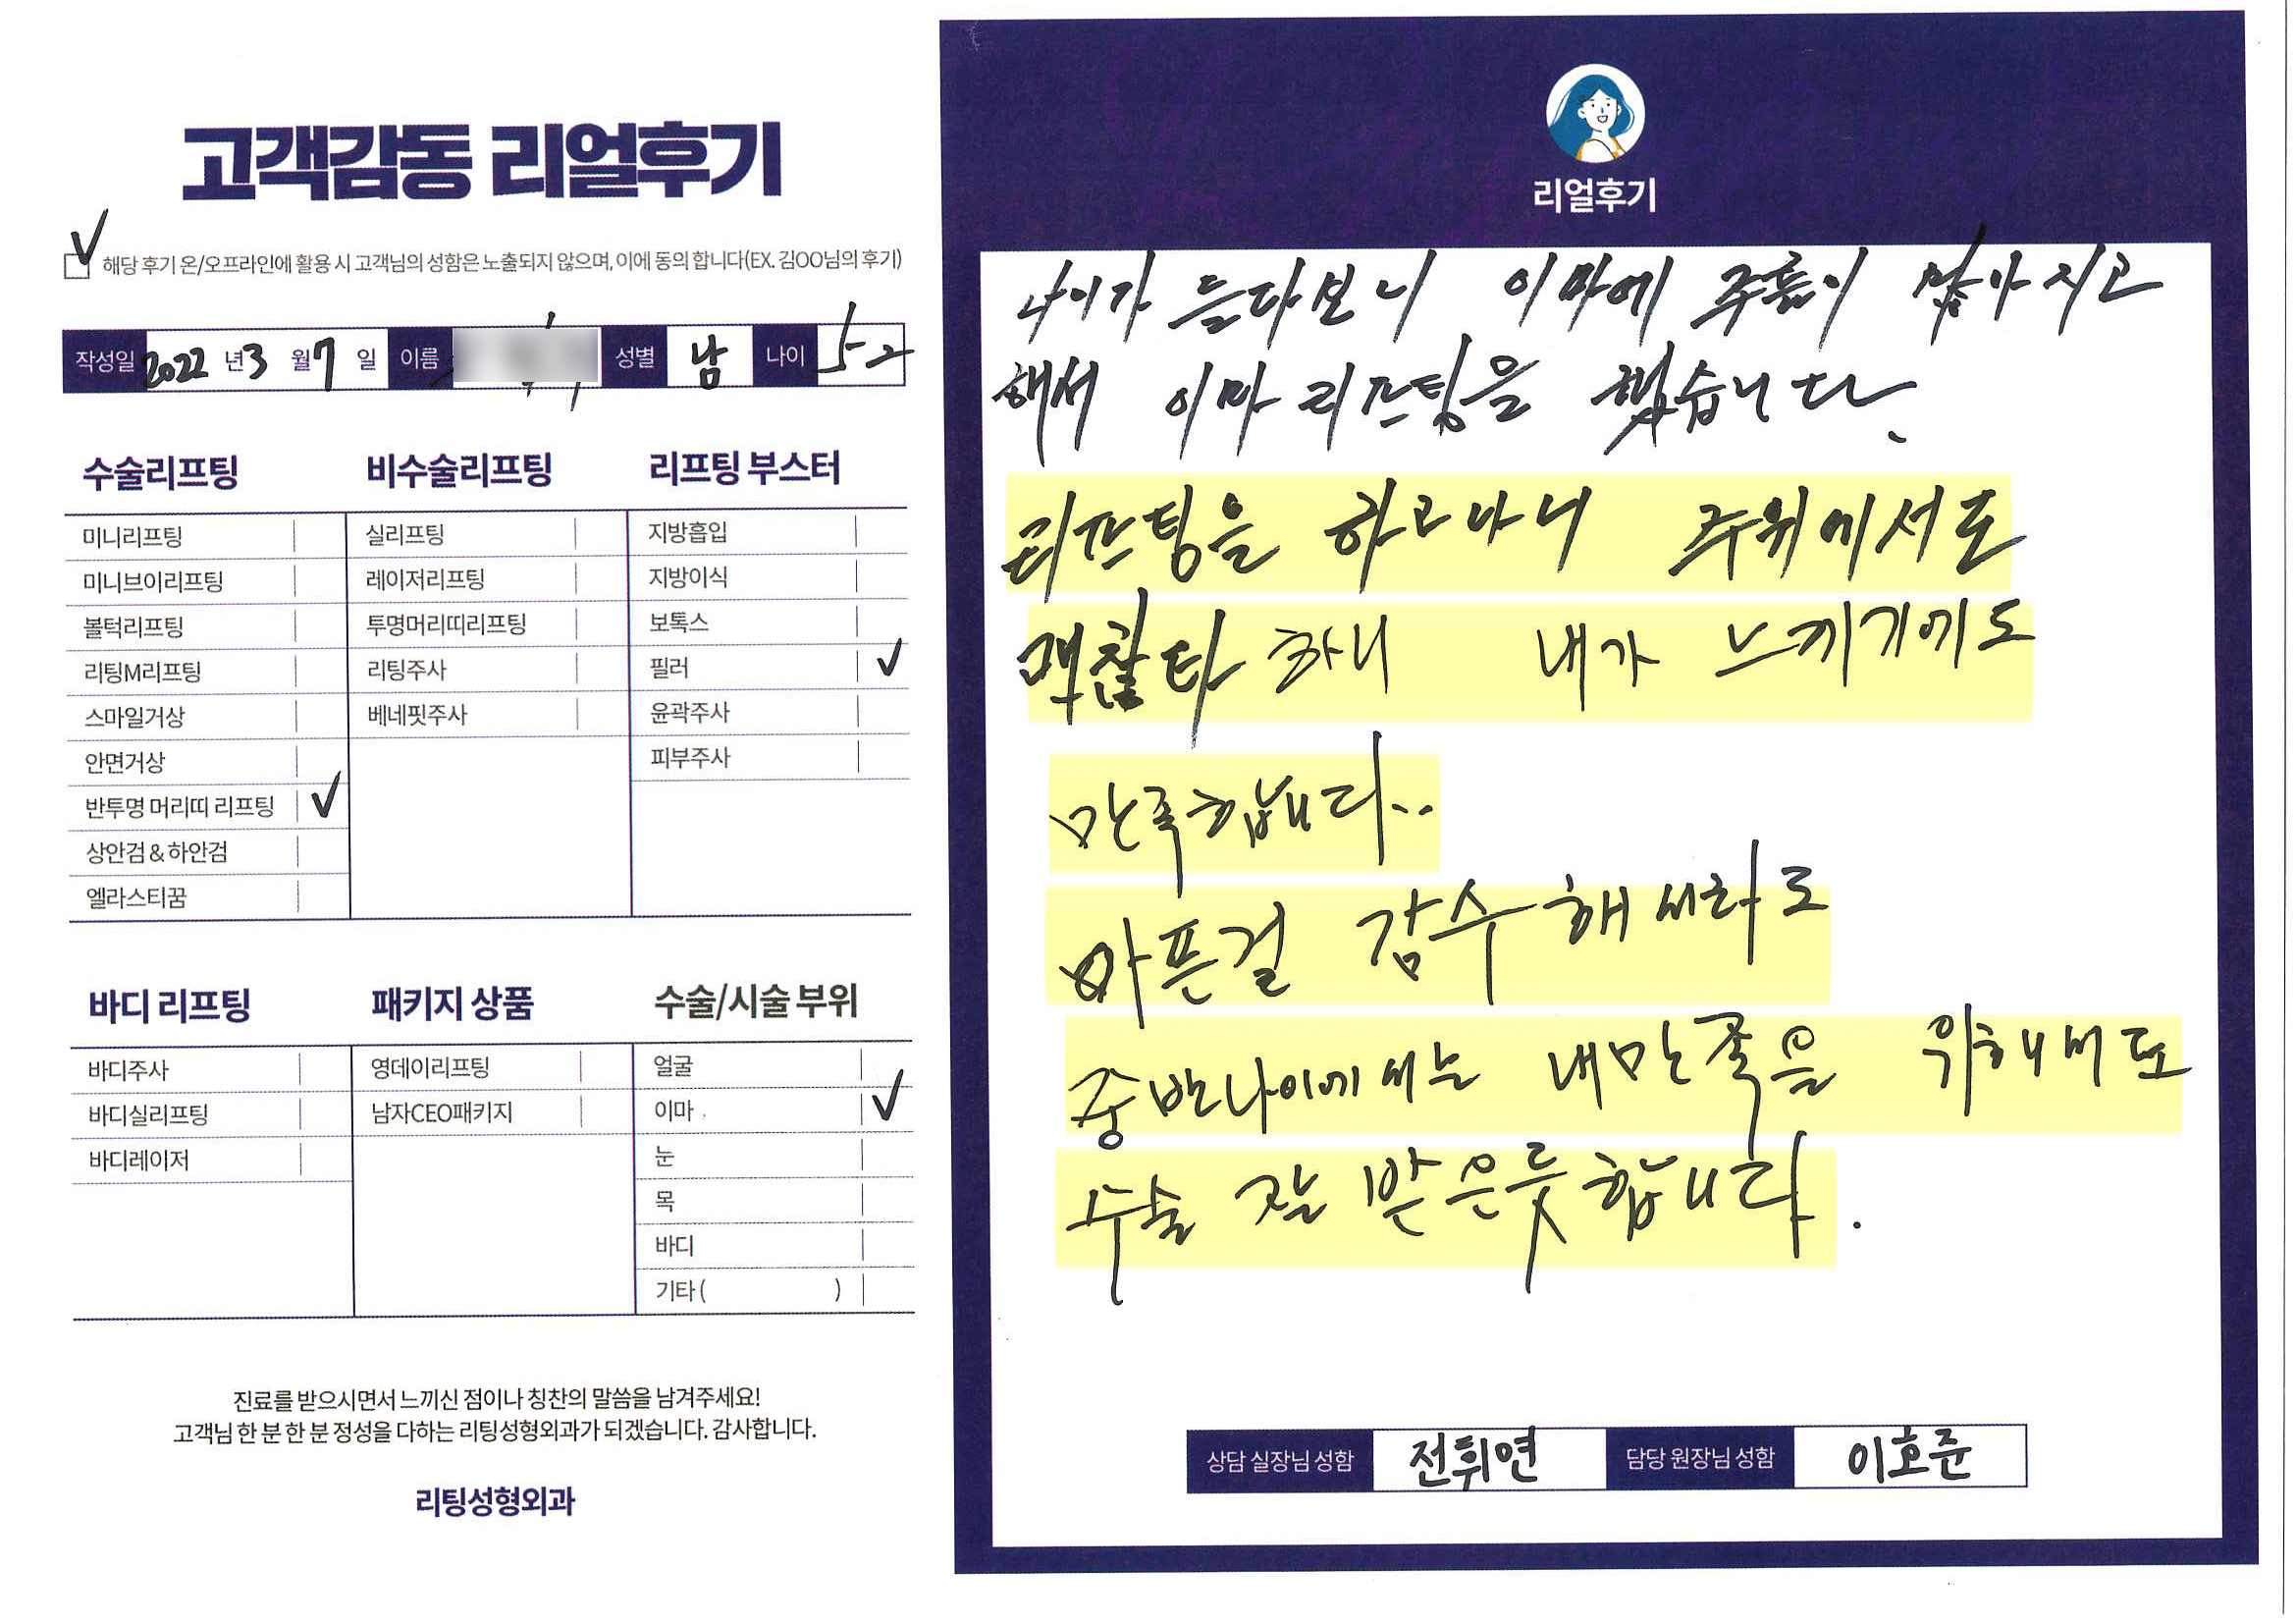 고객감동 리얼후기
해당 후기 온/오프라인에 활용 시 고객님의 성함은 노출되지 않으며, 이에 동의 합니다(EX. 김OO님의 후기)
작성일 2022 년 3 월 7 일 이름 성별 남 나이 52
수술리프팅
미니리프팅
미니브이리프팅
볼턱리프팅
리팅M리프팅
스마일거상
안면거상
반투명 머리띠 리프팅 ✓
상안검 & 하안검
엘라스티꿈
비수술리프팅
실리프팅
레이저리프팅
투명머리띠리프팅
리팅주사
베네핏주사
리프팅 부스터
지방흡입
지방이식
보톡스
필러 ✓
윤곽주사
피부주사
바디 리프팅
바디주사
바디실리프팅
바디레이저
패키지 상품
영데이리프팅
남자CEO패키지
수술/시술 부위
얼굴
이마 ✓
눈
목
바디
기타 ( )
진료를 받으시면서 느끼신 점이나 칭찬의 말씀을 남겨주세요!
고객님 한 분 한 분 정성을 다하는 리팅성형외과가 되겠습니다. 감사합니다.
리팅성형외과
리얼후기
나이가 들다보니 이마에 주름이 많아지고
해서 이마 리프팅을 했습니다.
리프팅을 하고나니 주위에서도
괜찮타 하니 내가 느끼기에도
만족합니다..
아픈걸 감수해서라도
중반나이에서는 내만족을 위해서도
수술 잘 받은듯합니다.
상담 실장님 성함 전휘연 담당 원장님 성함 이호준